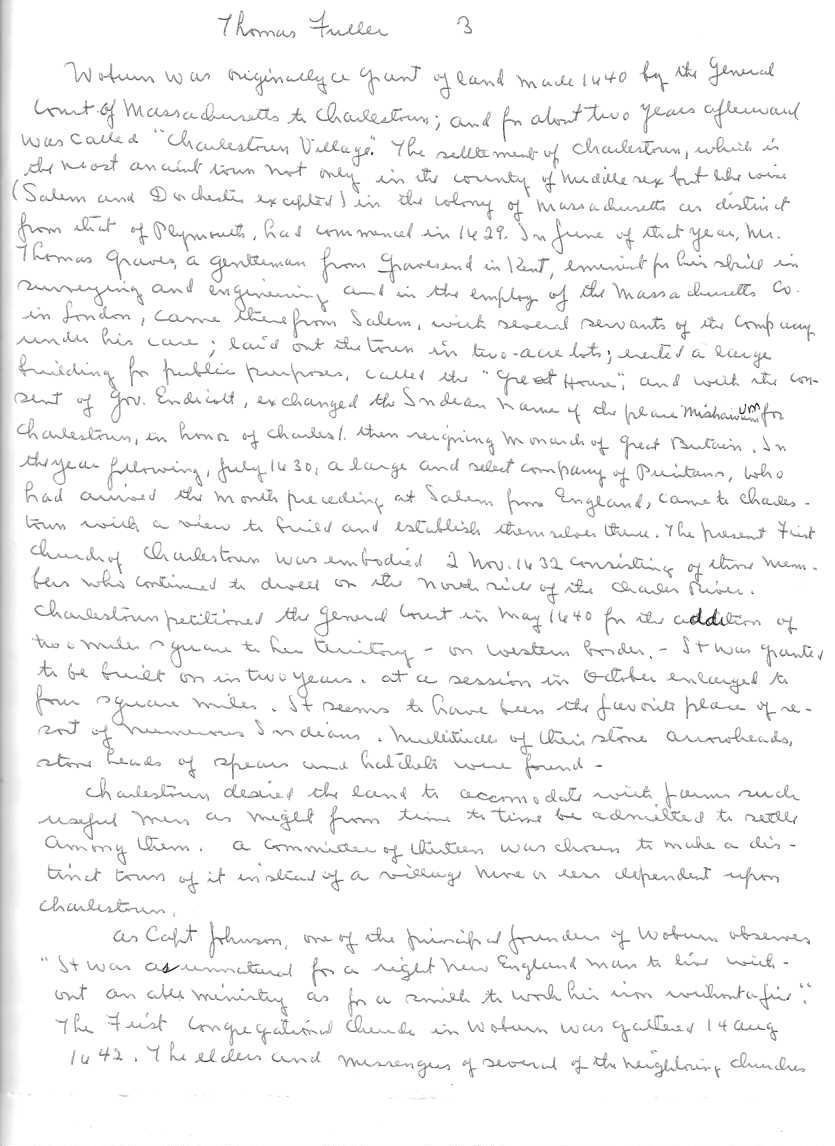 Thomas Fuller 3
Woburn was originally a grant of land made 1640 by the General
Court of Massachusetts to Charlestown; and for about two years afterward
was called "Charlestown Village". The settlement of Charlestown, which is
the most ancient town not only in the county of Middlesex but likewise
(Salem and Dorchester excepted) in the colony of Massachusetts as distinct
from that of Plymouth, had commenced in 1629. In June of that year, Mr.
Thomas Graves, a gentleman from Gravesend in Kent, eminent for his skill in
surveying and engineering and in the employ of the Massachusetts Co.
in London, came there from Salem, with several servants of the Company
under his care; laid out the town in two-acre lots; erected a large
building for public purposes, called the "Great House", and with the con-
sent of Gov. Endicott, exchanged the Indian name of the place Mishawum for
Charlestown, in honor of Charles I. then reigning monarch of Great Britain. In
the year following, July 1630, a large and select company of Puritans, who
had arrived the month preceding at Salem from England, came to Charles-
town with a view to build and establish themselves there. The present First
Church of Charlestown was embodied 2 Nov. 1632 consisting of those mem-
bers who continued to dwell on the north side of the Charles River.
Charlestown petitioned the General Court in May 1640 for the addition of
two miles square to her territory - on western border. - It was granted
to be built on in two years. at a session in October enlarged to
four square miles. It seems to have been the favorite place of re-
sort of numerous Indians. Multitudes of their stone arrowheads,
stone heads of spears and hatchets were found -
Charlestown desired the land to accomodate with farms such
useful men as might from time to time be admitted to settle
among them. A committee of thirteen was chosen to make a dis-
tinct town of it instead of a village more or less dependent upon
Charlestown.
As Capt Johnson, one of the principal founders of Woburn observes
"It was as unnatural for a right New England man to live with-
out an able ministry as for a smith to work his iron without a fire".
The First Congregational Church in Woburn was gathered 14 Aug
1642. The elders and messengers of several of the neighboring churches